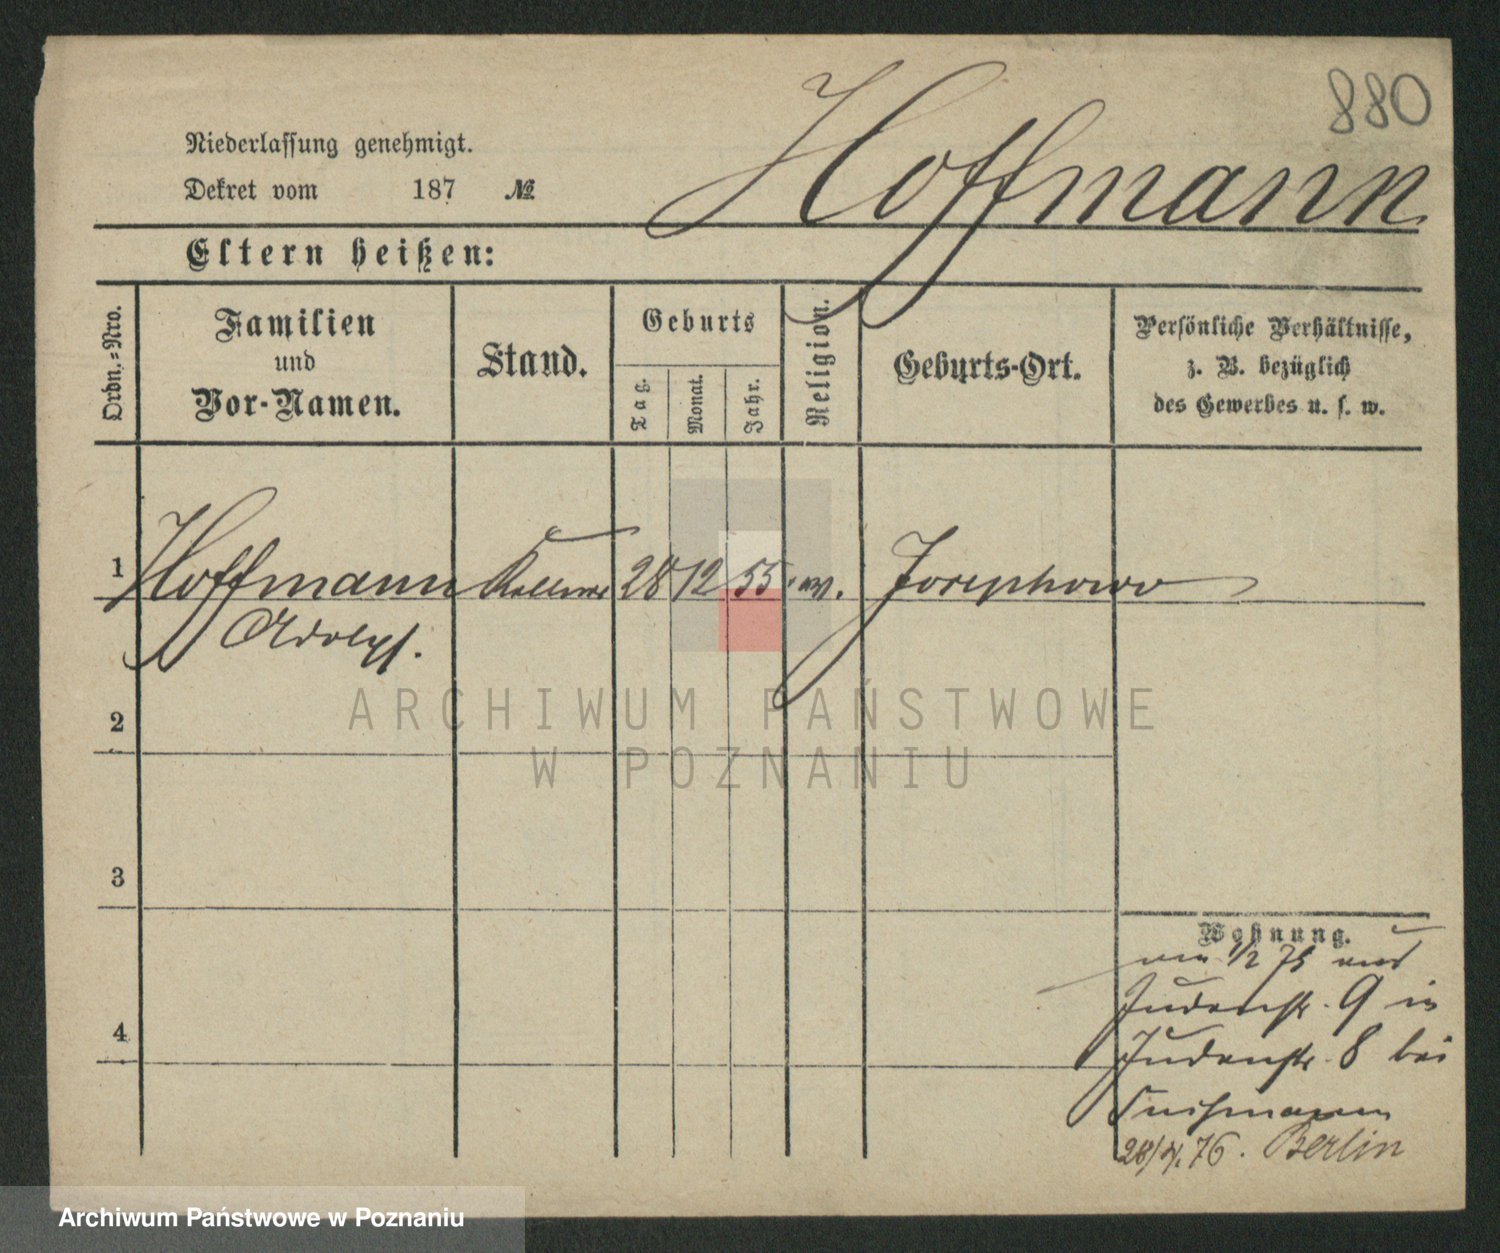 880
Hoffmann
Niederlassung genehmigt.
Dekret vom 187 №
Eltern heißen:
Ordn.=Nro.
Familien
und
Vor-Namen.
Stand.
Geburts
Tag.
Monat.
Jahr.
Religion.
Geburts-Ort.
Persönliche Verhältnisse,
z. B. bezüglich
des Gewerbes u. s. w.
1 Hoffmann Kellner 28 12 55 Josephowo
Adolph.
2
3
4
Wohnung.
1/2 75
Judenstr. 9 in
Judenstr. 8 bei
28/4.76. Berlin
ARCHIWUM PAŃSTWOWE
W POZNANIU
Archiwum Państwowe w Poznaniu